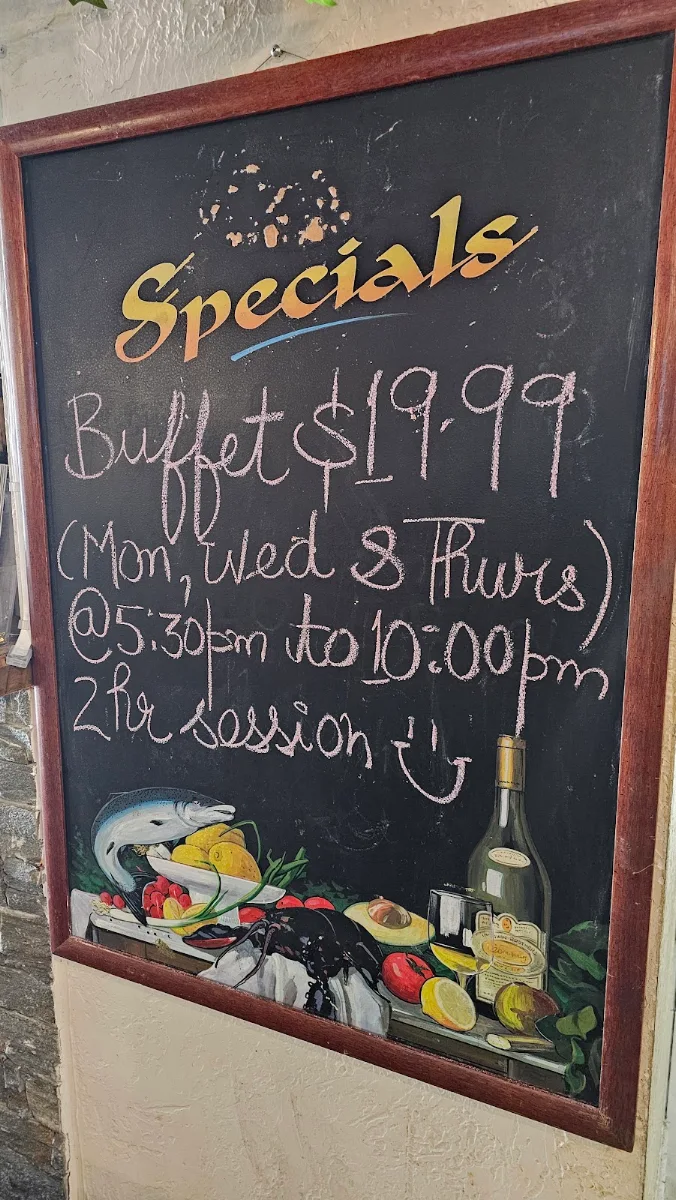 Specials
Buffet $19.99
(Mon, Wed & Thurs)
@5:30pm to 10:00pm
2hr session